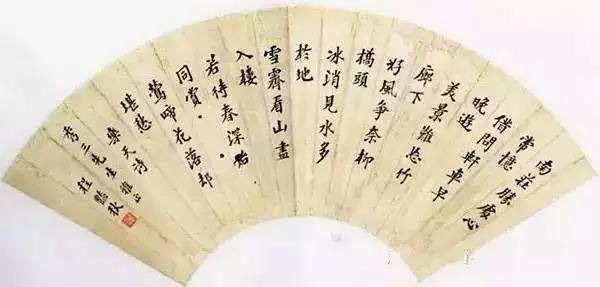 南莊勝處心
常憶
借問軒車早
晚遊
美景難忘竹
廊下
好風爭奈柳
橋頭
冰消見水多
於地
雪霽看山盡
入樓
若待春深始
同賞
鶯啼花落却
堪愁
樂天詩
秀三先生雅正
程豔秋